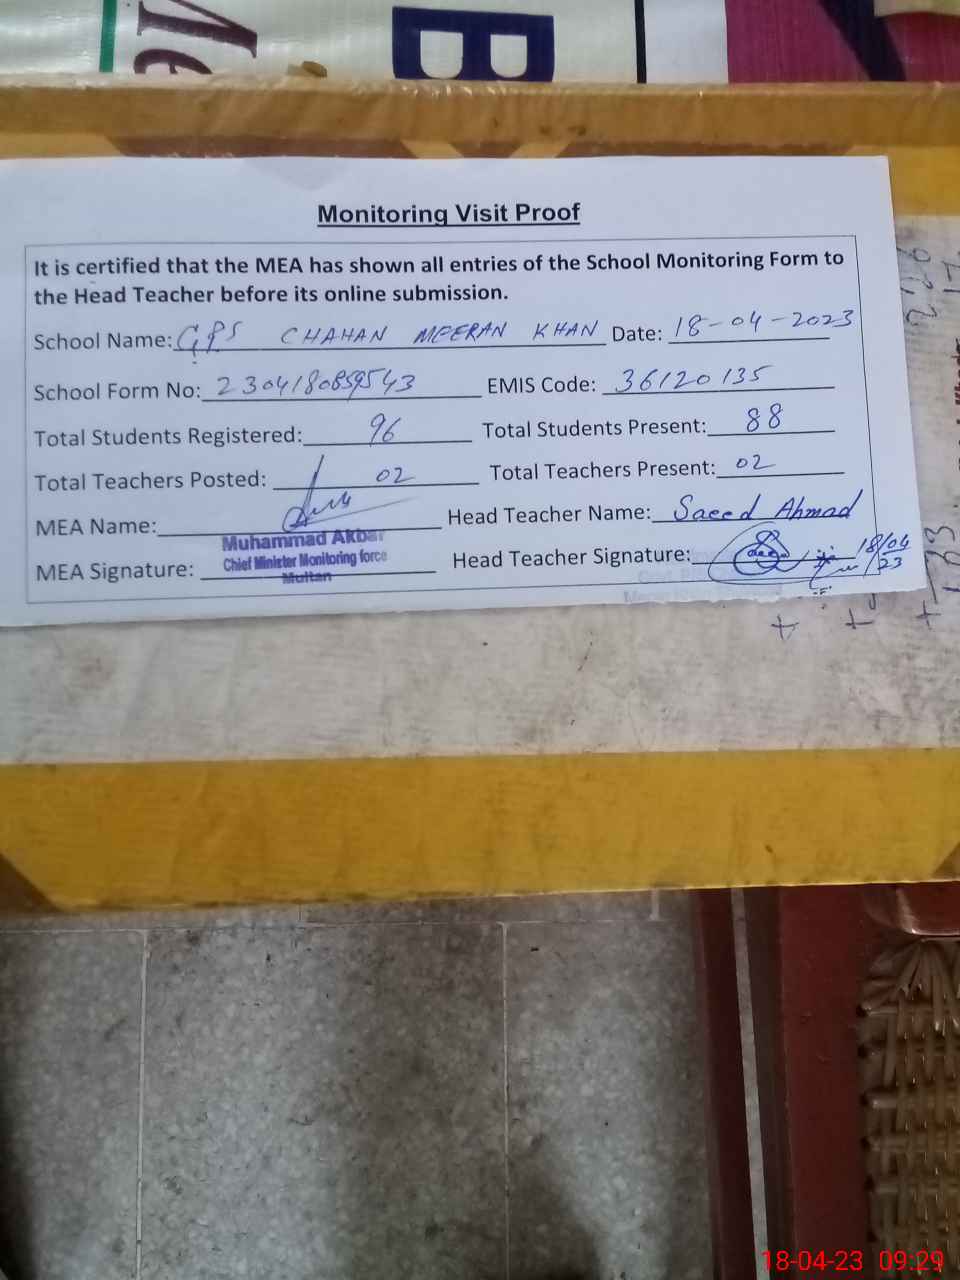 Me B
Monitoring Visit Proof
It is certified that the MEA has shown all entries of the School Monitoring Form to
the Head Teacher before its online submission.
School Name: GPS CHAHAN MEERAN KHAN Date: 18-04-2023
School Form No: 2304180859543 EMIS Code: 36120135
Total Students Registered: 96 Total Students Present: 88
Total Teachers Posted: 02 Total Teachers Present: 02
MEA Name: Head Teacher Name: Saeed Ahmad
Muhammad Akbar
MEA Signature: Chief Minister Monitoring force Head Teacher Signature: 18/04/23
Multan
18-04-23 09:29